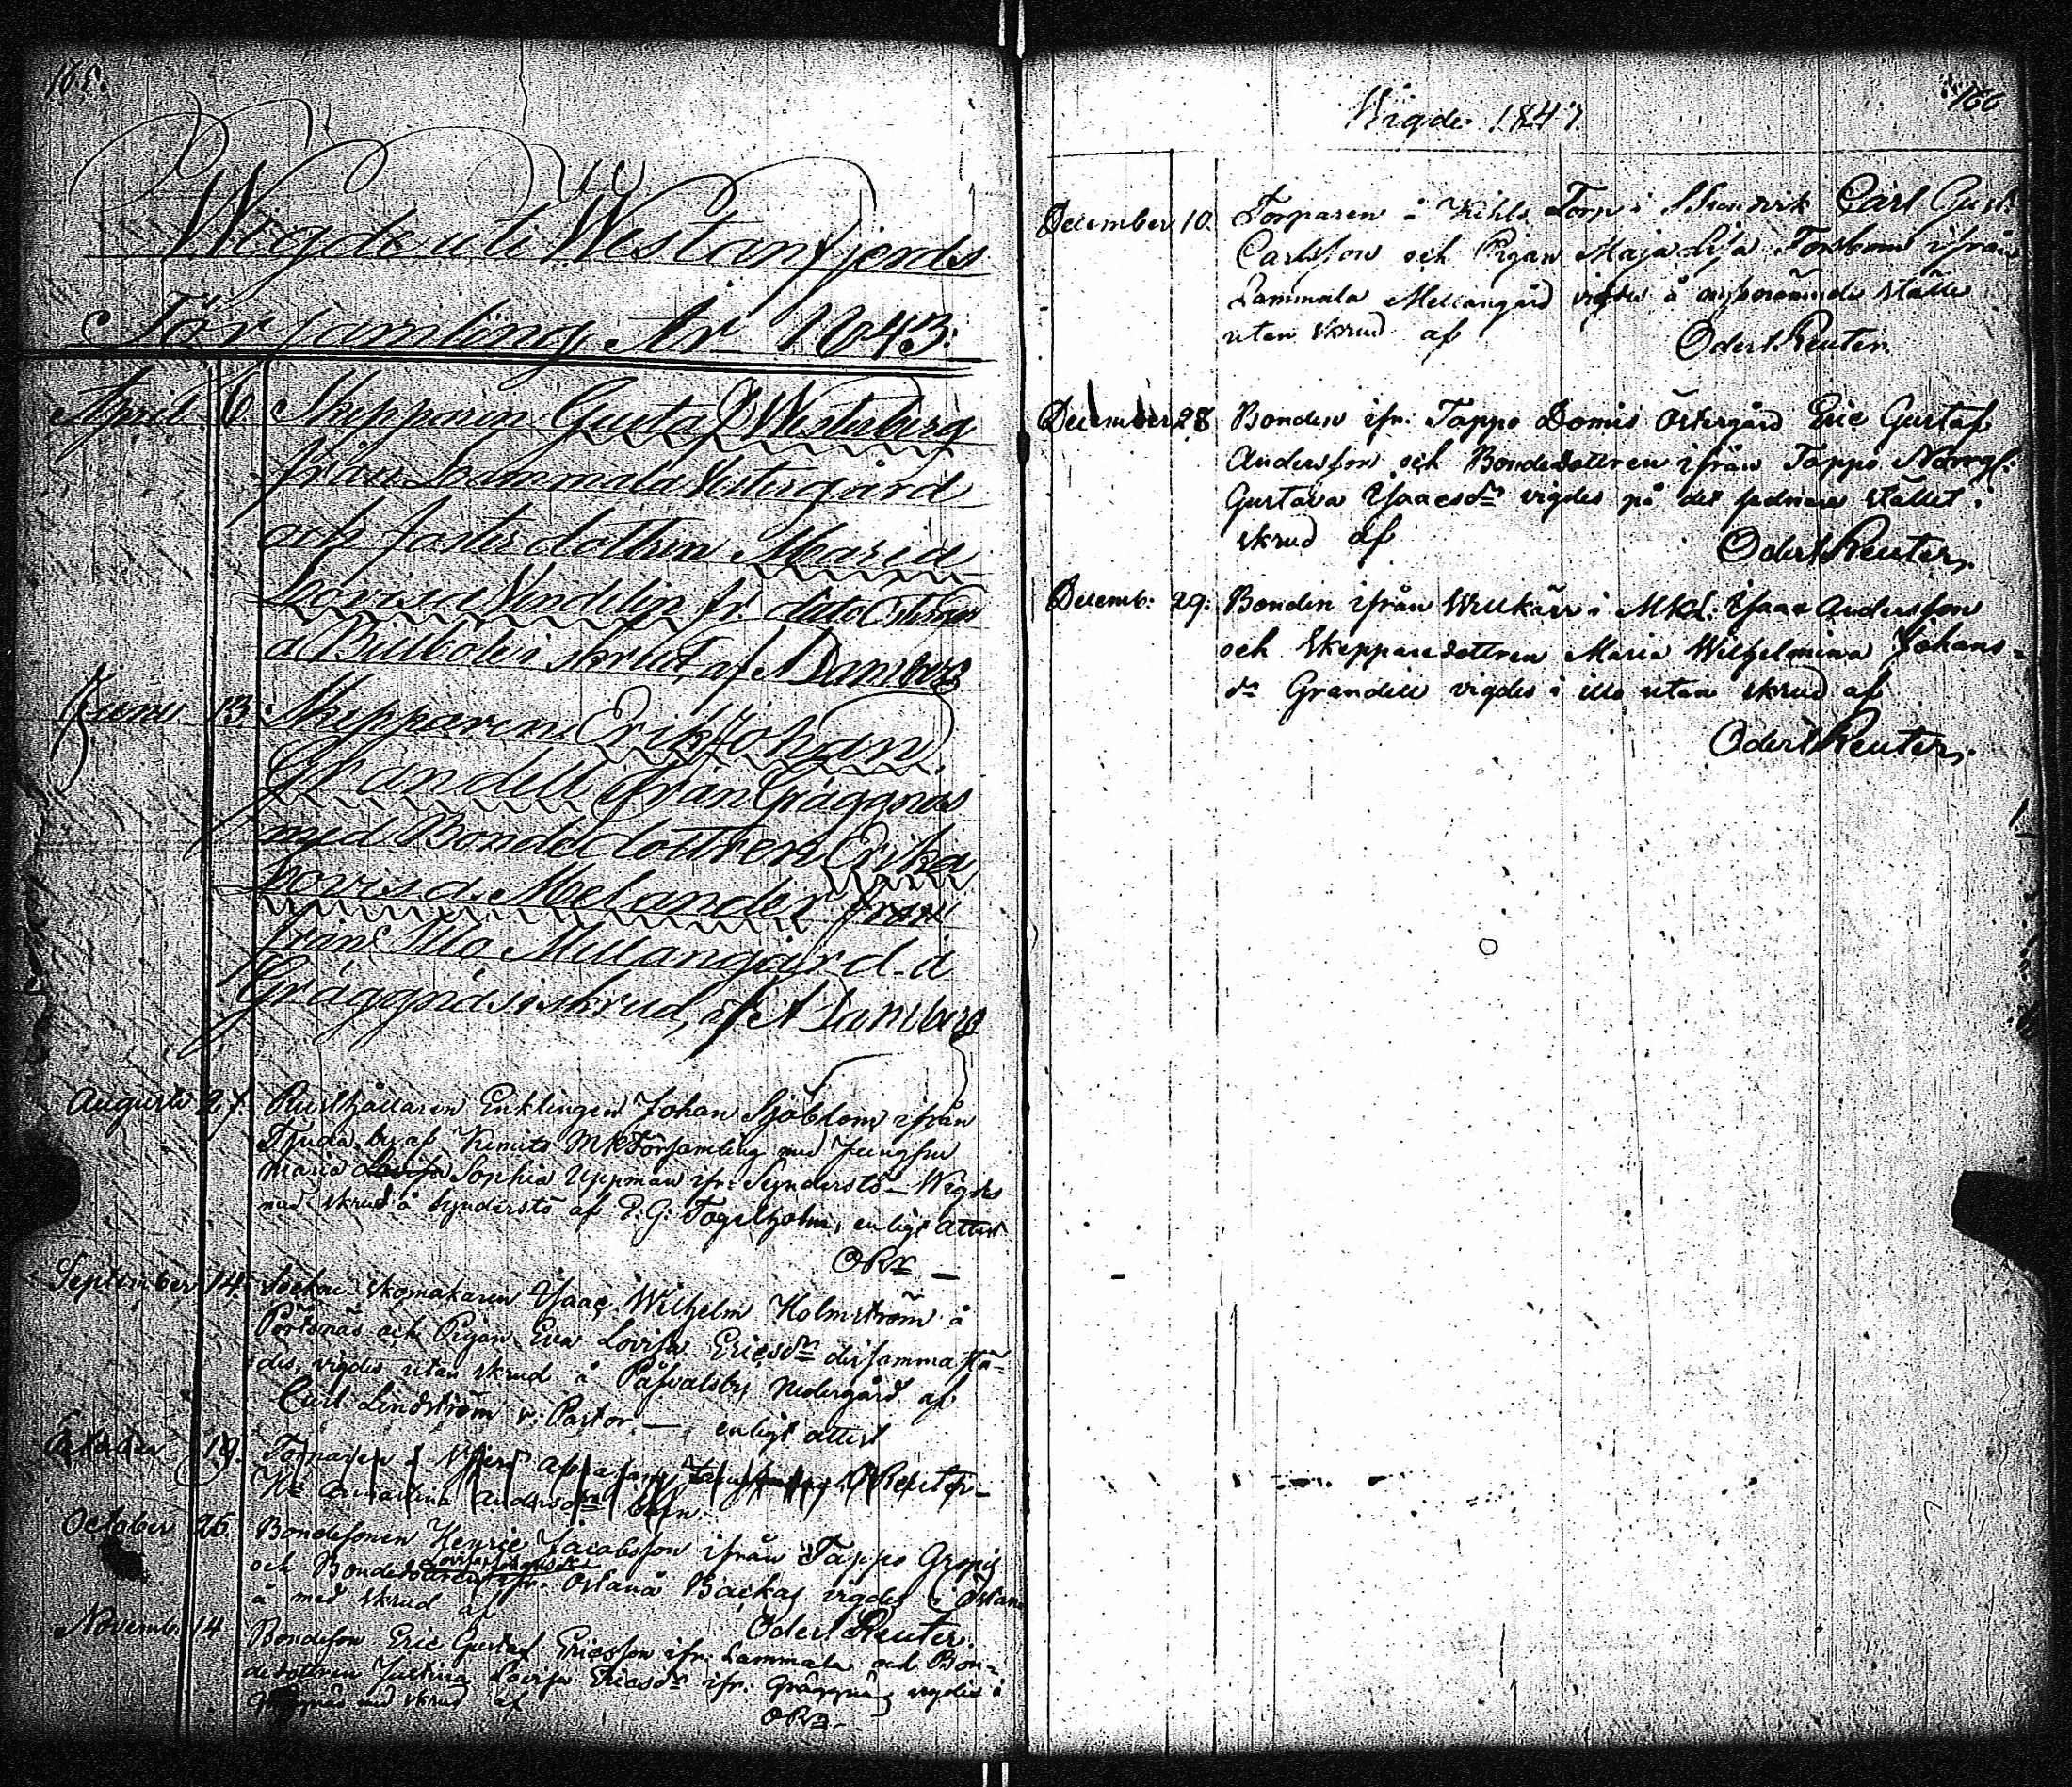 165.
Wigde uti Westanfjerds
Församling År 1843.
April 6. Skepparen Gustaf Westerberg
från Lammala Westergård
och fosterdottren Maria
Lovisa Vendelin fr. dito
a Billböle i skrud, af A Damberg
Junii 13. Skepparen Erik Johan
Grandell från Gräggnäs
med Bondedottren Erika
Lovisa Melander
från Illo Mellangård å
Gräggnäs i skrud, af A Damberg
Augusti 27. Rusthållaren Enklingen Johan Sjöblom ifrån
Tjuda by af Kimito MkFörsamling med Jungfru
Maria Lovisa Sophia Uppman ifr: Synderstö – Wigdes
med skrud å Synderstö af P. G. Fogelholm, enligt Attest
ORr –
September 14. Sockne skomakaren Isaac Wilhelm Holmström å
Pörtsnäs och Pigan Eva Lovisa Ericsdr dersammastä-
des, vigdes utan skrud å Påvalsby Nedergård af
Carl Lindström v: Pastor – enligt attest
October 19. Reuter
Andersdr
October 26. Bondesonen Henric Jacobsson ifrån Tappo Gropis
och Bondedottren ifr: Östanå Backas vigdes i Östan-
å med skrud af
Odert Reuter.
Novemb. 14 Bondeson Eric Gustaf Ericsson ifr: Lammala och Bon-
dedottren Justina Lovisa Ericsdr ifr: Gräggnäs vigdes i
Gräggnäs med skrud af
ORr.
166
Wigde 1843.
December 10. Torparen å Kihls Torp i Carl Gust:
Carlsson och Pigan Maja Lisa Forsbom ifrån
Lammala Mellangård vigdes å ställe
uten skrud af
Odert Reuter.
December 28 Bonden ifr: Tappo Domis Östergård Eric Gustaf
Andersson och Bondedottren ifrån Tappo Norrg:
Gustava Isaacsdr vigdes på det sednare stället i
skrud af
Odert Reuter.
Decemb: 29. Bonden ifrån Willkärr i MKd: Isaac Andersson
och Skepparedottren Maria Wilhelmina Johans-
dr Grandell vigdes i illo utan skrud af
Odert Reuter.